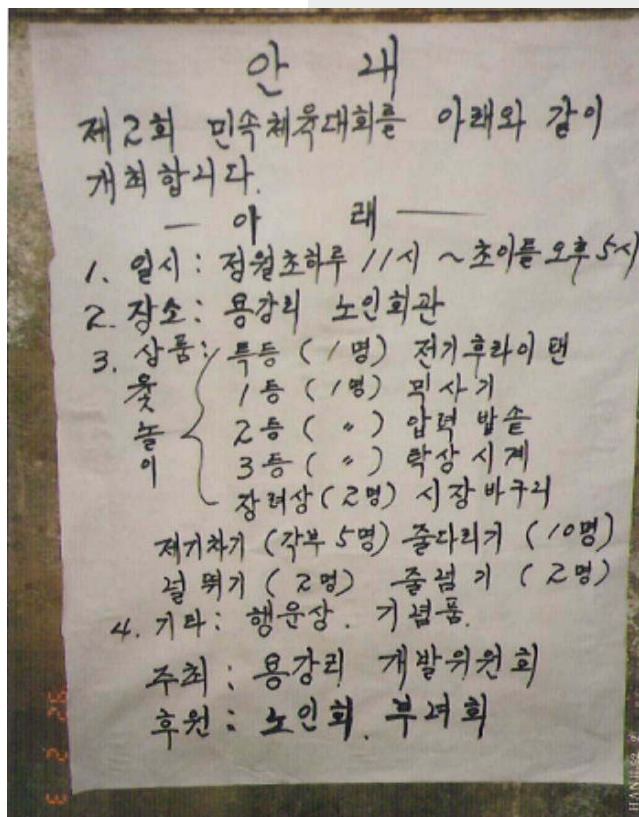 안 내
제2회 민속체육대회를 아래와 같이
개최합니다.
— 아 래 —
1. 일시 : 정월초하루 11시 ~ 초이틀 오후 5시
2. 장소 : 용강리 노인회관
3. 상품 : 특등 (1명) 전기후라이 팬
윷놀이
1등 (1명) 믹사기
2등 ( 〃 ) 압력 밥솥
3등 ( 〃 ) 탁상 시계
장려상 (2명) 시장바구리
제기차기 (각부 5명) 줄다리기 (10명)
널뛰기 (2명) 줄넘기 (2명)
4. 기타 : 행운상. 기념품.
주최 : 용강리 개발위원회
후원 : 노인회. 부녀회
'92 2 3